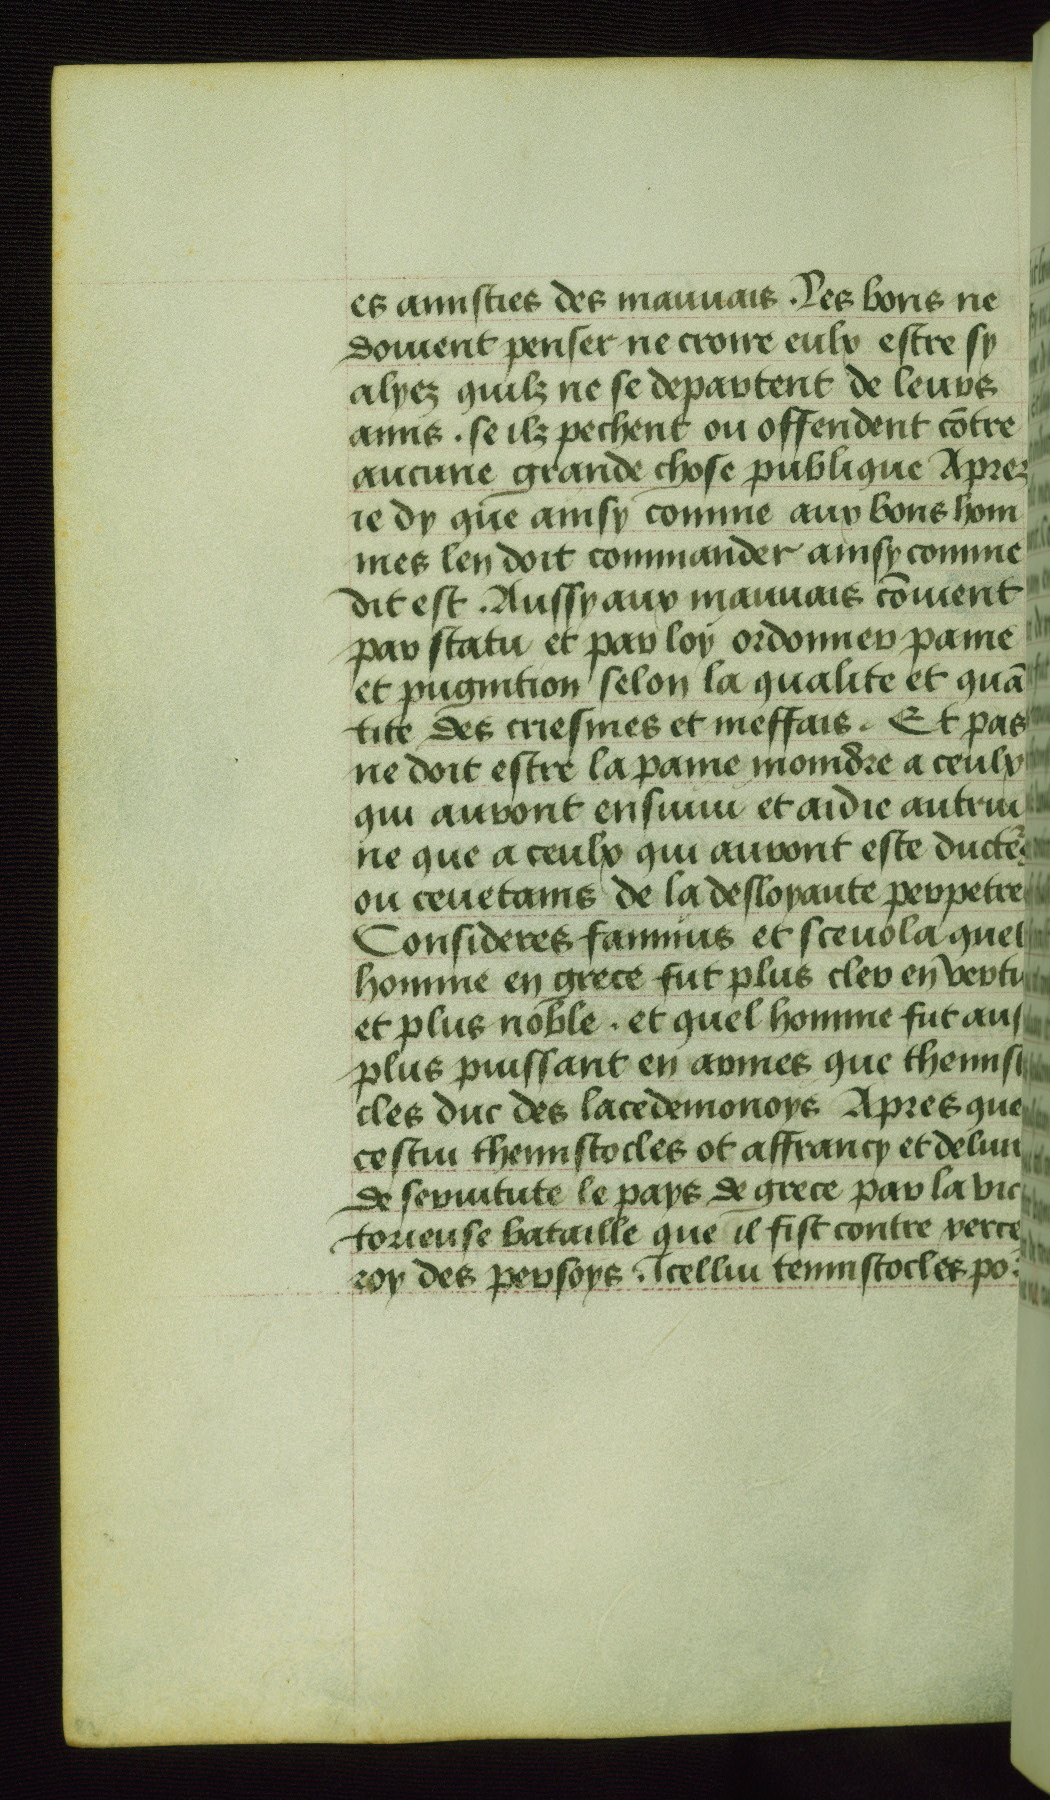 es amisties des mauuais . Les bons ne
doiuent penser ne croire eulx estre sy
alyez quilz ne se departent de leurs
amis . se ilz pechent ou offendent cōtre
aucune grande chose publique Aprez
ie dy que ainsy comme aux bons hom
mes len doit commander ainsy comme
dit est . Aussy aux mauuais cōuient
par statu et par loy ordonner paine
et pugnition selon la qualite et quā
tite des criesmes et meffais . Et pas
ne doit estre la paine moindre a ceulx
qui auront ensuiui et aidie autrui
ne que a ceulx qui auront este
ou ceuetains de la desloyaute perpetre
Consideres fannius et sceuola quel
homme en grece fut plus cler en vertu
et plus noble . et quel homme fut
plus puissant en armes que
cles duc des lacedemonoys Apres que
cestui themistocles ot affrancy et
de seruitute le pays de grece par la vic
torieuse bataille que il fist contre
roy des persoys . Icellui temistocles